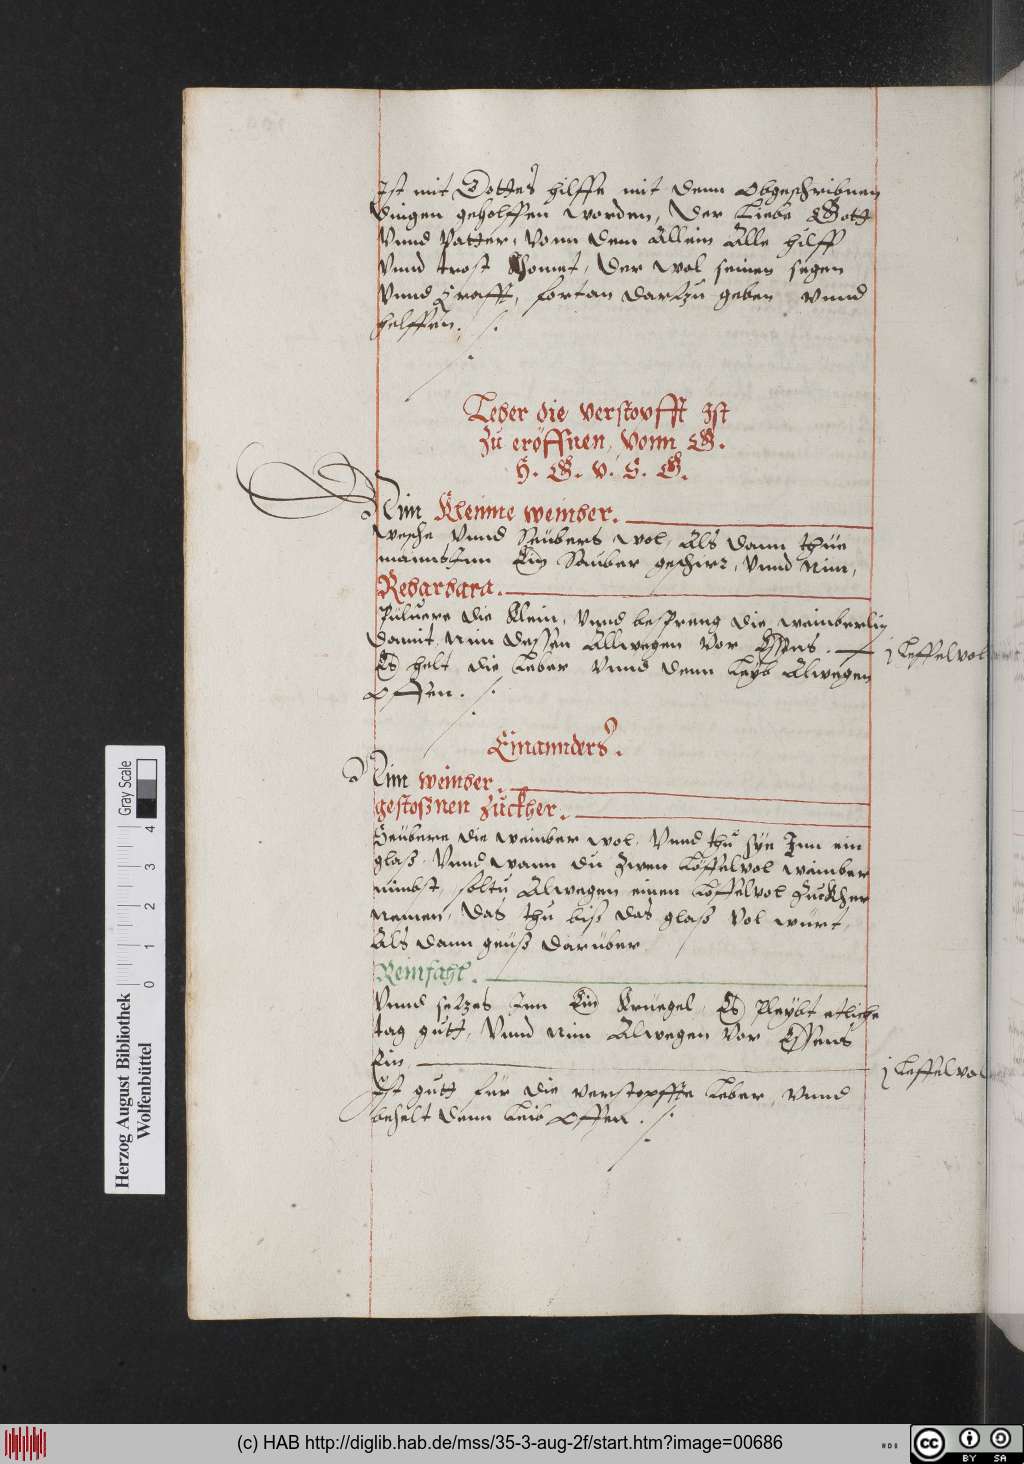 Ist mit Gottes hilffe mit denn Obgeschribnen
dingen geholffen worden, Der Liebe Gott
Vnnd Vatter, Vonn dem Allein Alle hilff
Vnnd trost khomet, Der wol seinen segen
Vnnd Krafft, fortan dartzu geben Vnnd
helffen.
Leber die verstopfft Ist
Zu eröffnen, vonn G.
H. G. V. S. G.
Nim Kleinne weinber.
Wesche Vnnd Seübers wol, Als dann thüe
manns Inn Ein Sauber geschirr, Vnnd Nim,
Rebarbara.
Püluere die Klein, Vnnd bespreng die weinberlin
damit, Nim dessen Allwegen Vor Essens. j Leffelvol
Es helt die Leber Vnnd denn Leyb Alwegen
Offen.
Einannders.
Nim weinber.
gestoßnen Zuckher.
Seübere die Weinber wol, Vnnd thu sye Inn ein
glaß, Vnnd wann du Zwen Löffelvol weinber
nimbst, soltu Alwegen einen Löffelvol Zuckher
Nemen, das thu biß das glaß Vol würt,
Als dann geüß darüber
Reinfahl.
Vnnd setzes Inn Ein Kruegel, Es Pleybt etliche
tag gutt, Vnnd Nim Alwegen Vor Essens
Ein j Leffelvol
Ist gutt für die verstopffte Leber, Vnnd
behelt denn Leib Offen.
Herzog August Bibliothek
Wolfenbüttel
0 1 2 3 4
Gray Scale
(c) HAB http://diglib.hab.de/mss/35-3-aug-2f/start.htm?image=00686
cc BY SA